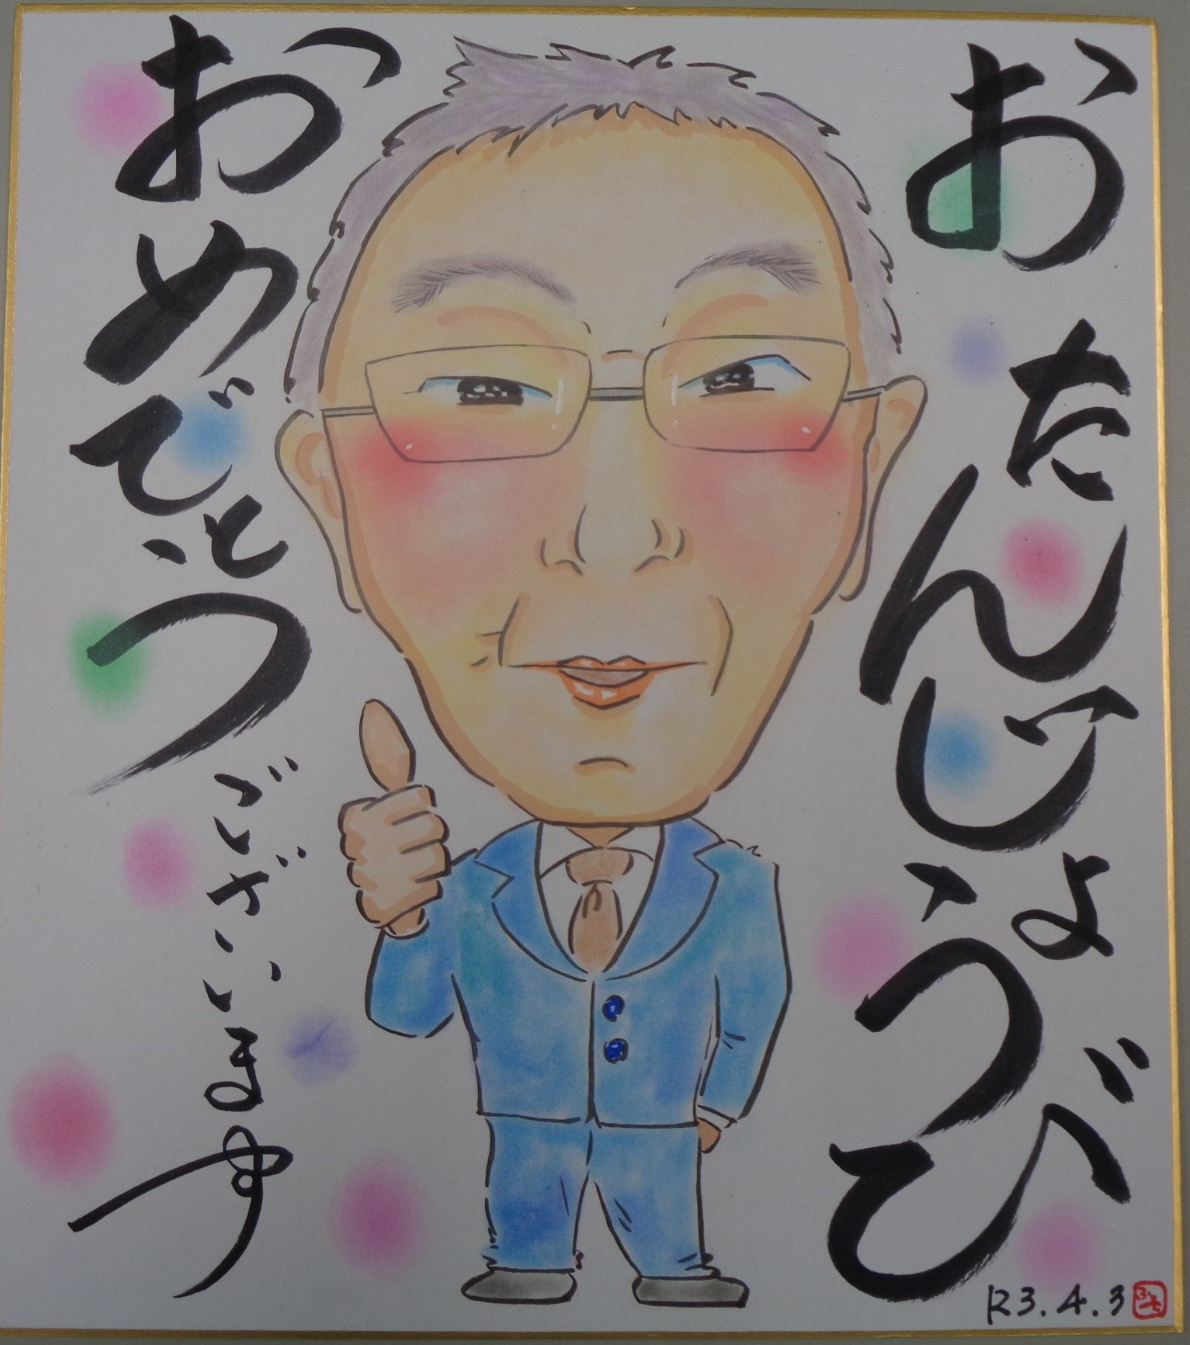 おたんじょうび
おめでとう
ございます
R3.4.3